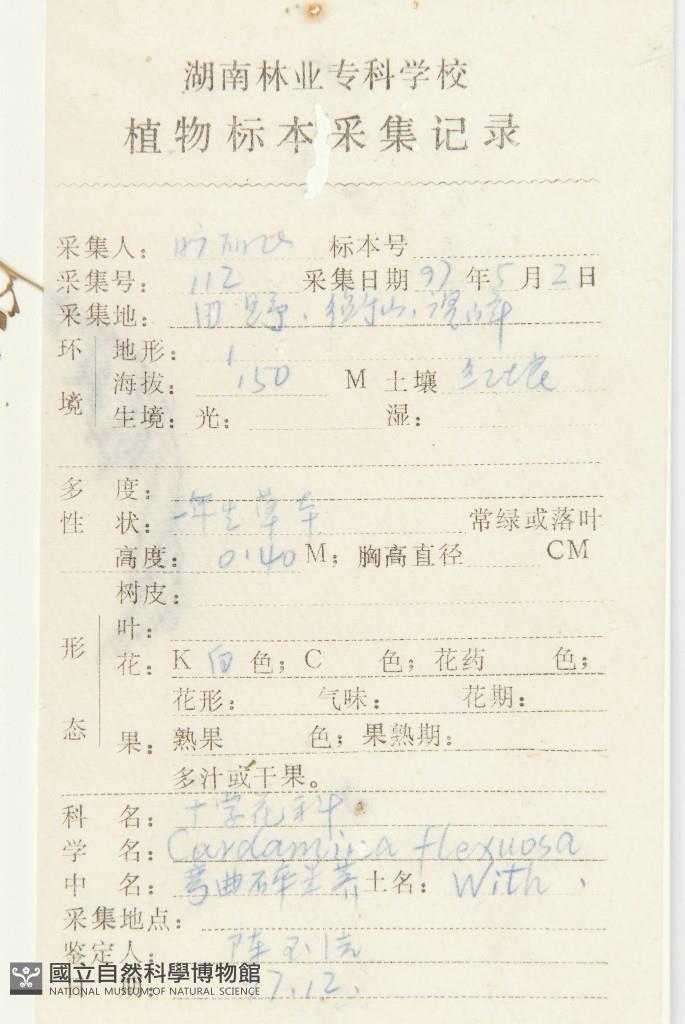 湖南林业专科学校
植物标本采集记录
采集人： 标本号
采集号： 112 采集日期 97 年 5 月 2 日
采集地： 田野、
环境 地形：
海拔： 150 M 土壤 红壤
生境：光： 湿：
多度：
性状： 一年生草本 常绿或落叶
高度： 0.40 M；胸高直径 CM
树皮：
形态 叶：
花： K 白 色；C 色；花药 色；
花形： 气味： 花期：
果：熟果 色；果熟期：
多汁或干果。
科名： 十字花科
学名： Cardamina flexuosa
中名： 弯曲碎米荠 土名： With.
采集地点：
鉴定人： 陈
國立自然科學博物館
NATIONAL MUSEUM OF NATURAL SCIENCE
7.12.